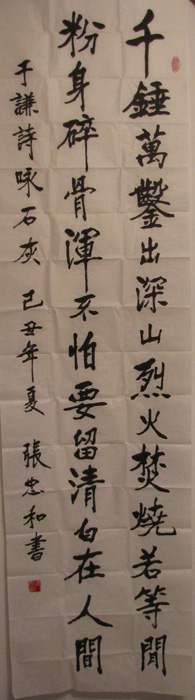 千錘萬鑿出深山烈火焚燒若等閒
粉身碎骨渾不怕要留清白在人間
于謙詩咏石灰 己丑年夏 張忠和書